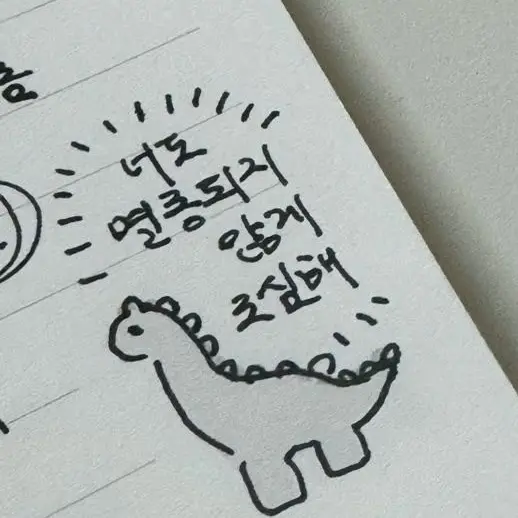 너도
멸종되지
않게
조심해